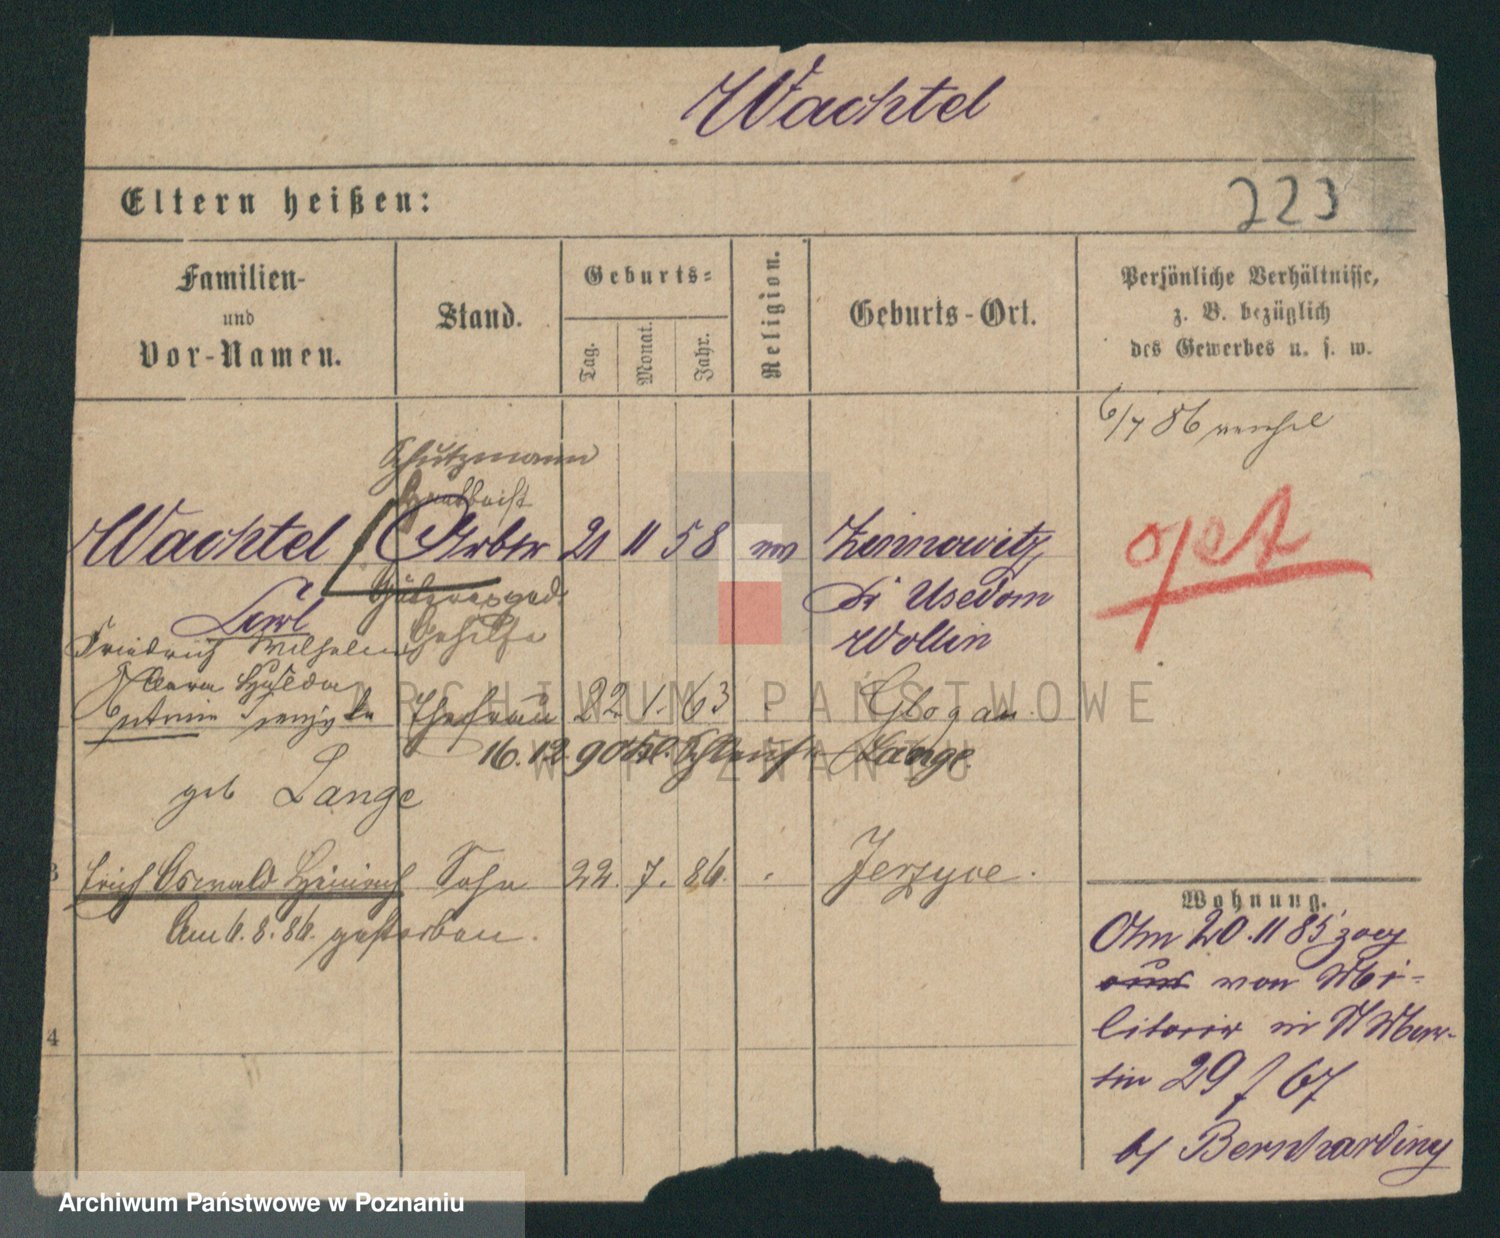 Wachtel
Eltern heißen:
223
Familien-
und
Vor-Namen.
Stand.
Geburts-
Tag.
Monat.
Jahr.
Religion.
Geburts-Ort.
Persönliche Verhältnisse,
z. B. bezüglich
des Gewerbes u. s. w.
6/7 86
Schutzmann
Wachtel Arbtr 21 11 58 Zinnowitz
Kr Usedom
Wollin
opet
Carl
Friedrich Wilhelm Gehilfe
Clara Hulda
Ehefrau 22. 1. 63 Glogau
16. 12. 90 Lange
geb Lange
3 Erich Oswald Heinrich Sohn 22. 7. 86. Jerzyce.
Am 6. 8. 86. gestorben.
Wohnung.
Am 20.11 85 zog
aus von Mi-
litair in St Mar-
tin 29 f 67
b/ Bernharding
4
ARCHIWUM PAŃSTWOWE
W POZNANIU
Archiwum Państwowe w Poznaniu